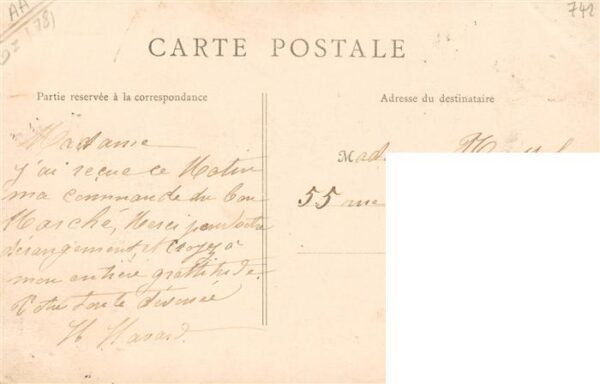 AA
742
CARTE POSTALE
Partie reservée à la correspondance
Adresse du destinataire
Madame
j'ai reçue ce Matin
ma commande du bon
Marché, Merci pour votre
dérangement et croyez à
mon entière grattitude.
Votre toute dévouée
H Havard.
Mad
55 rue